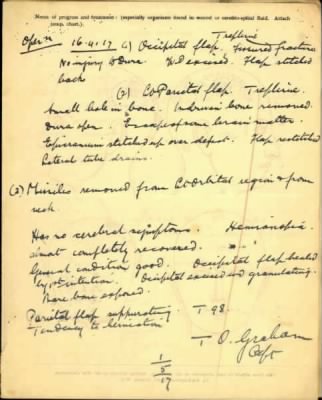 Notes of progress and treatment: (especially organisms found in wound or cerebro-spinal fluid. Attach
temp. chart.)
Trephine
Opern 16.4.17 (1) Occipital flap. Fissured fracture
No injury to Dura. Wd excised. Flap stitched
back
(2) Lt Parietal flap. Trephine.
Small hole in bone. Indriven bone removed.
Dura open. Escape of some brain matter.
Epicranium stitched up over defect. Flap restitched
Lateral tube drains.
(3) Missiles removed from Lt Orbital region & from
neck.
Has no cerebral symptoms. Hemianopia
almost completely recovered.
General condition good. Occipital flap healed
by 1st intention. Occipital excised and granulating.
Bare bone exposed.
Parietal flap suppurating T 98.
Tendency to herniation
T. D. Graham
Capt
1
5
17